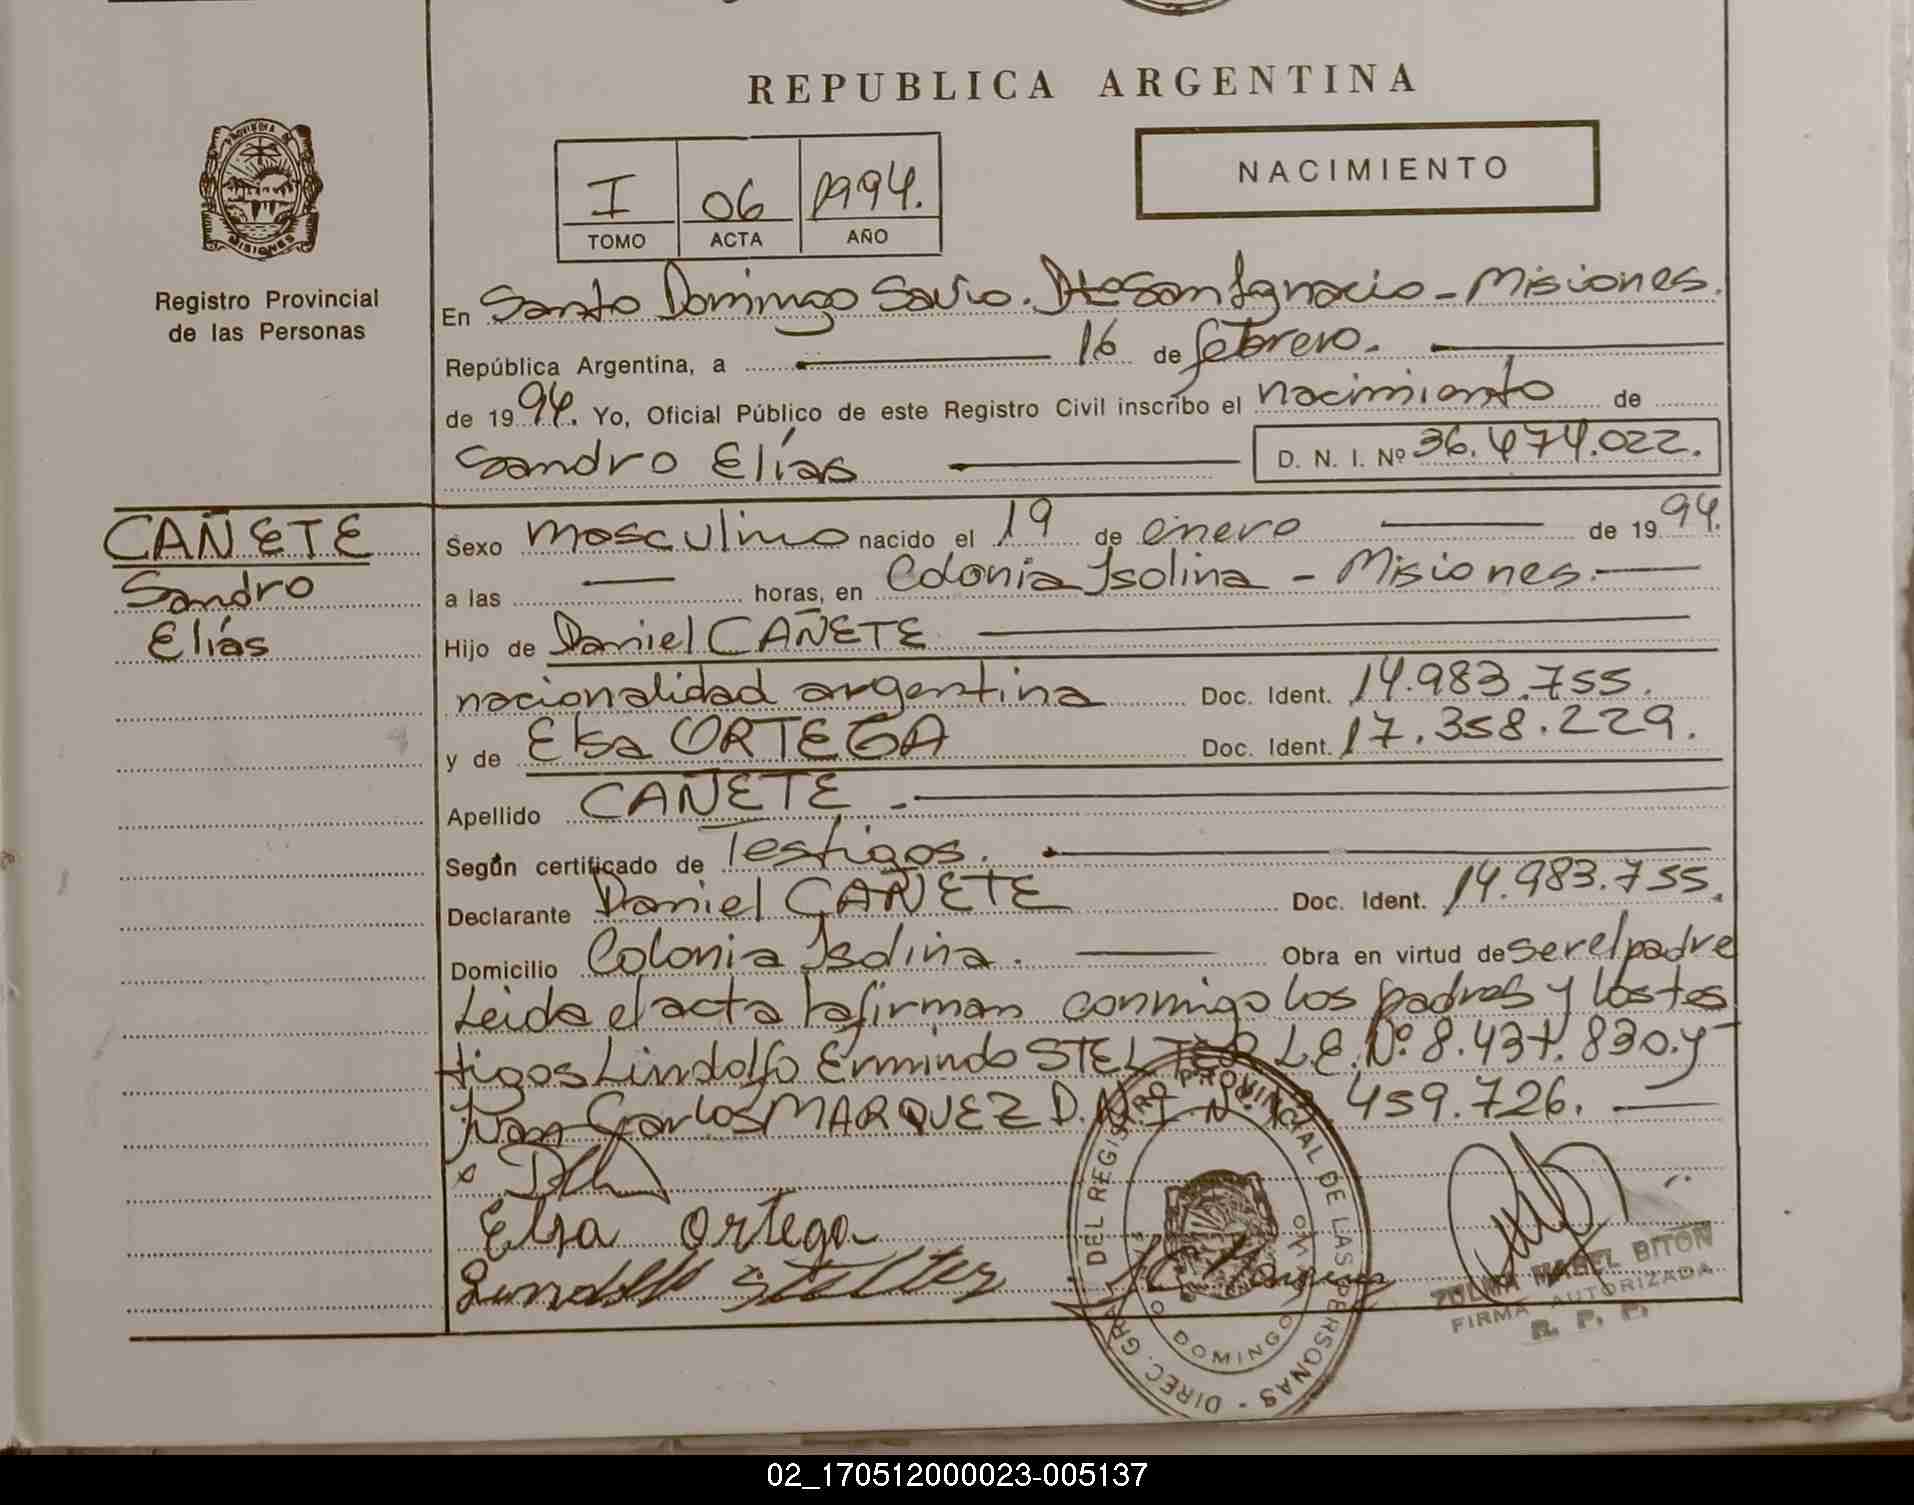 REPUBLICA ARGENTINA
PROVINCIA DE
MISIONES
Registro Provincial
de las Personas
I 06 1994.
TOMO ACTA AÑO
NACIMIENTO
En Santo Domingo Savio. Dto San Ignacio - Misiones.
República Argentina, a 16 de febrero.
de 1994. Yo, Oficial Público de este Registro Civil inscribo el nacimiento de
Sandro Elías D. N. I. Nº 36.474.022.
CAÑETE
Sandro
Elías
Sexo masculino nacido el 19 de enero de 1994.
a las horas, en Colonia Isolina - Misiones.
Hijo de Daniel CAÑETE
nacionalidad argentina Doc. Ident. 14.983.755.
y de Elsa ORTEGA Doc. Ident. 17.358.229.
Apellido CAÑETE.
Según certificado de Testigos.
Declarante Daniel CAÑETE Doc. Ident. 14.983.755.
Domicilio Colonia Isolina. Obra en virtud de ser el padre
Leida el acta la firman conmigo los padres y los tes
tigos Lindolfo Ermindo STELTER L.E. Nº. 8.437.830. y
Juan Carlos MARQUEZ D.N.I Nº. 459.726.
Elsa Ortega
Lindolfo Stelter
DIREC. GRAL. DEL REGISTRO PROVINCIAL DE LAS PERSONAS
DOMINGO SAVIO
ZULMA MABEL BITON
FIRMA AUTORIZADA
R. P. P.
02_170512000023-005137